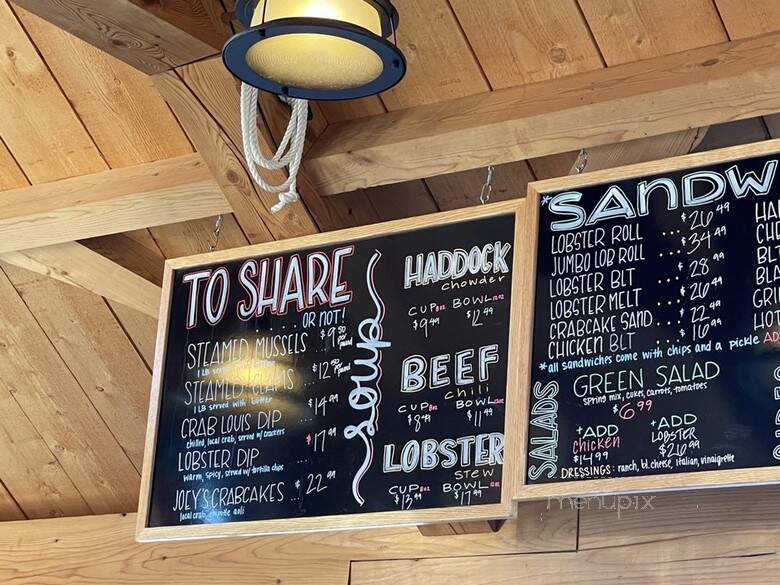 TO SHARE
... OR NOT!
STEAMED MUSSELS $9.50 per pound
STEAMED CLAMS ... $12.50 per pound
1 LB served with butter
CRAB LOUIS DIP ... $14.99
chilled, local crab, served w/ crackers
LOBSTER DIP ... $17.99
warm, spicy, served w/ tortilla chips
JOEY'S CRABCAKES ... $22.99
local crab, aoli
soup
HADDOCK
chowder
CUP 8oz BOWL 12oz
$9.49 $12.49
BEEF
chili
CUP 8oz BOWL 12oz
$8.49 $11.49
LOBSTER
STEW
CUP 8oz BOWL 12oz
$13.99 $17.99
*SANDW
LOBSTER ROLL .... $26.49
JUMBO LOB ROLL ... $34.49
LOBSTER BLT ... $28.99
LOBSTER MELT ... $26.49
CRABCAKE SAND ... $22.49
CHICKEN BLT ... $16.99
HA
CHE
BLT
BL
GRI
HOT
*all sandwiches come with chips and a pickle AD
SALADS
GREEN SALAD
spring mix, cukes, carrots, tomatoes
$6.99
+ADD chicken $14.99
+ADD LOBSTER $26.99
DRESSINGS: ranch, bl. cheese, italian, vinaigrette
menupix